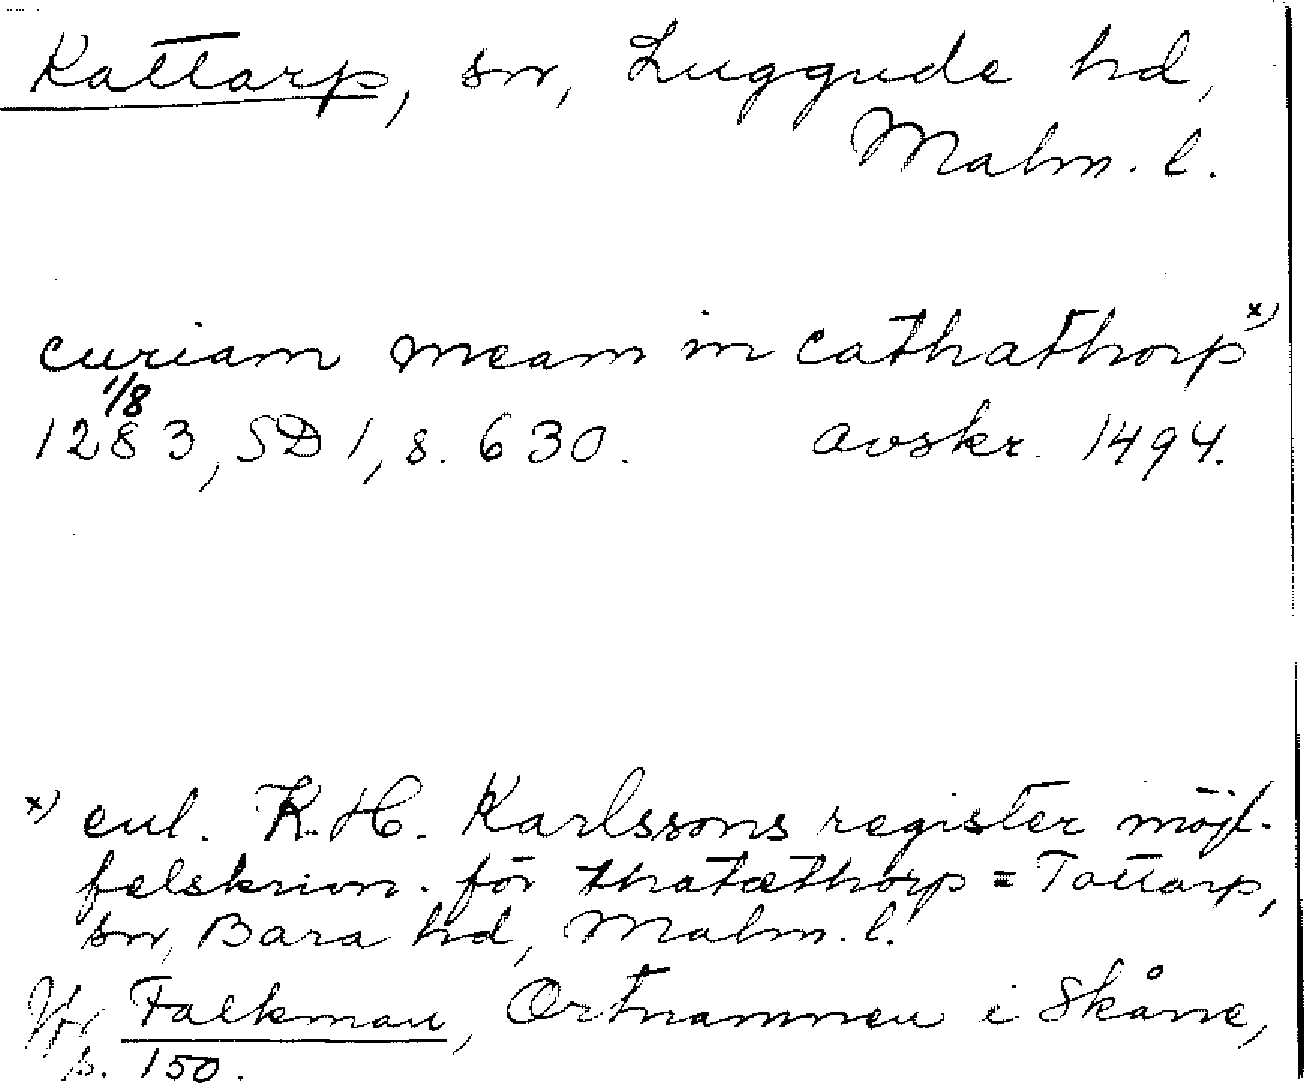 Kattarp, sn, Luggude hd,
Malm. l.
curiam meam in cathathorp x)
1/8
1283, SD 1, s. 630. avskr. 1494.
x) enl. K. H. Karlssons register möjl.
felskrivn. för thatæthorp = Tottarp,
sn, Bara hd, Malm. l.
Jfr Falkman, Ortnamnen i Skåne,
s. 150.